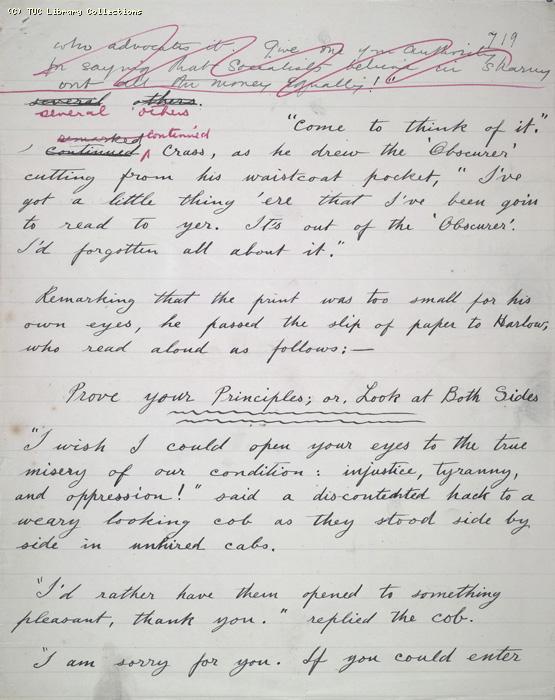 (C) TUC Library Collections
719
who advocates it. Give me your authority
for saying that Socialists believe in Sharing
out all the money equally!"
several others.
several others
"Come to think of it."
remarked continued
continued Crass, as he drew the 'Obscurer'
cutting from his waistcoat pocket, "I've
got a little thing 'ere that I've been goin
to read to yer. It's out of the 'Obscurer'.
I'd forgotten all about it."
Remarking that the print was too small for his
own eyes, he passed the slip of paper to Harlow,
who read aloud as follows:—
Prove your Principles; or, Look at Both Sides
"I wish I could open your eyes to the true
misery of our condition: injustice, tyranny,
and oppression!" said a discontented hack to a
weary looking cob as they stood side by
side in unhired cabs.
"I'd rather have them opened to something
pleasant, thank you." replied the cob.
"I am sorry for you. If you could enter